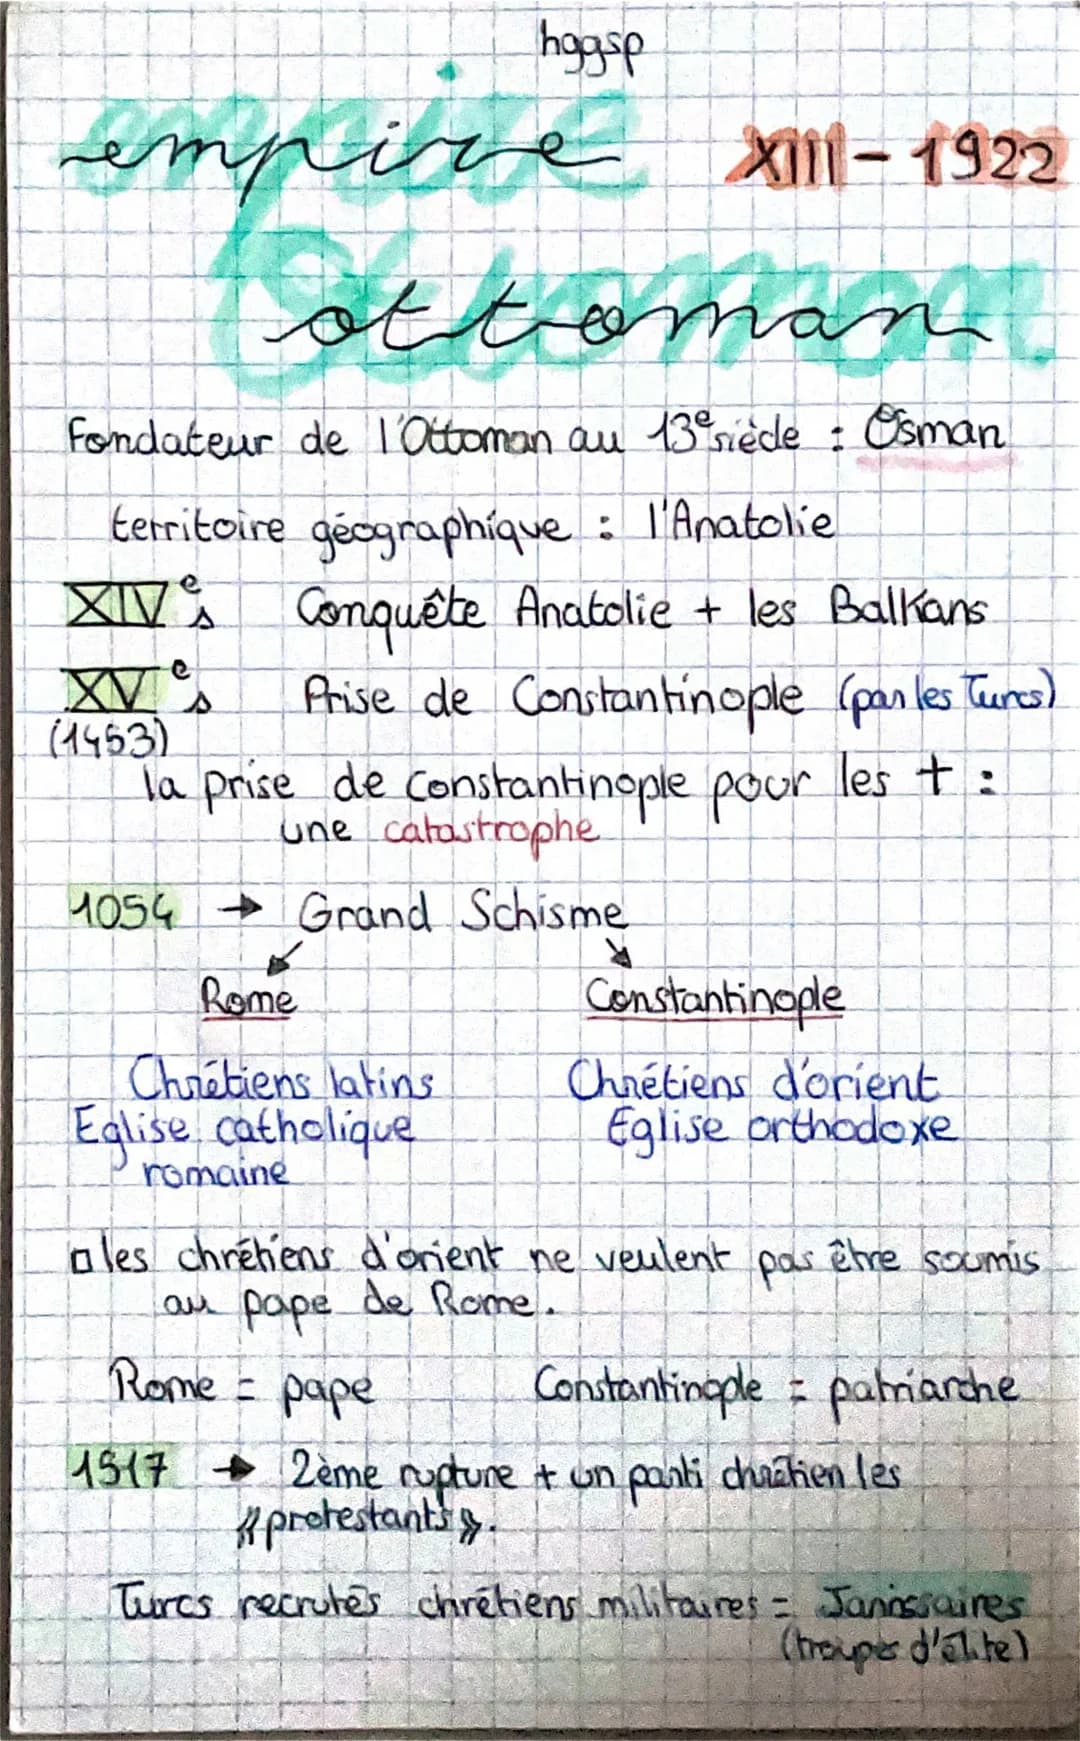 hggsp
empire XIII - 1922
ottoman
Fondateur de l'Ottoman au 13e siècle : Osman
territoire géographique : l'Anatolie
XIVe s Conquête Anatolie + les Balkans
XVe s Prise de Constantinople (par les Turcs)
(1453)
la prise de Constantinople pour les + :
une catastrophe
1054 → Grand Schisme
Rome Constantinople
Chrétiens latins Chrétiens d'orient
Eglise catholique Eglise orthodoxe
romaine
□ les chrétiens d'orient ne veulent pas être soumis
au pape de Rome.
Rome = pape Constantinople = patriarche
1517 → 2ème rupture + un parti chrétien les
«protestants».
Turcs recrutés chrétiens militaires = Janissaires
(troupes d'élite)